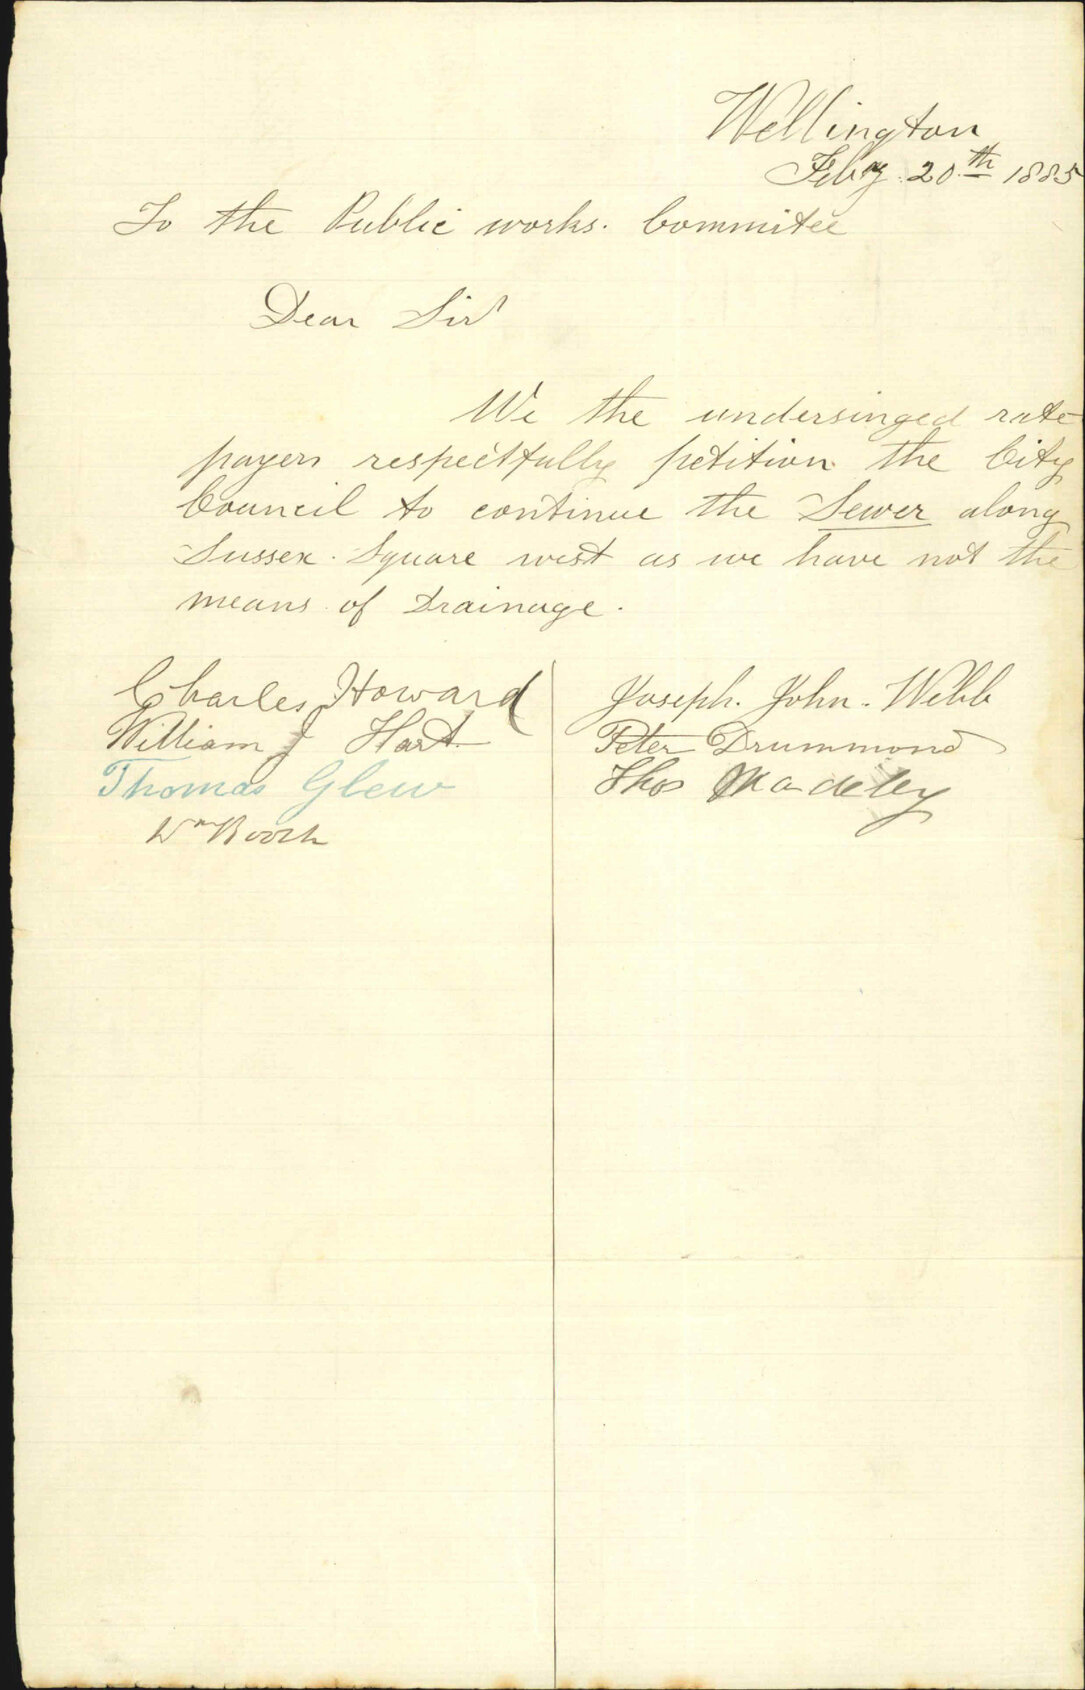 Wellington
Feby. 20th 1885
To the Public works. Commitee
Dear Sir
We the undersinged rate
payers respectfully petition the City
Council to continue the Sewer along
Sussex. Square west as we have not the
means of Drainage.
Charles Howard
William J Hart
Thomas Glew
Wm Booth
Joseph. John. Webb
Peter Drummond
Thos Madeley